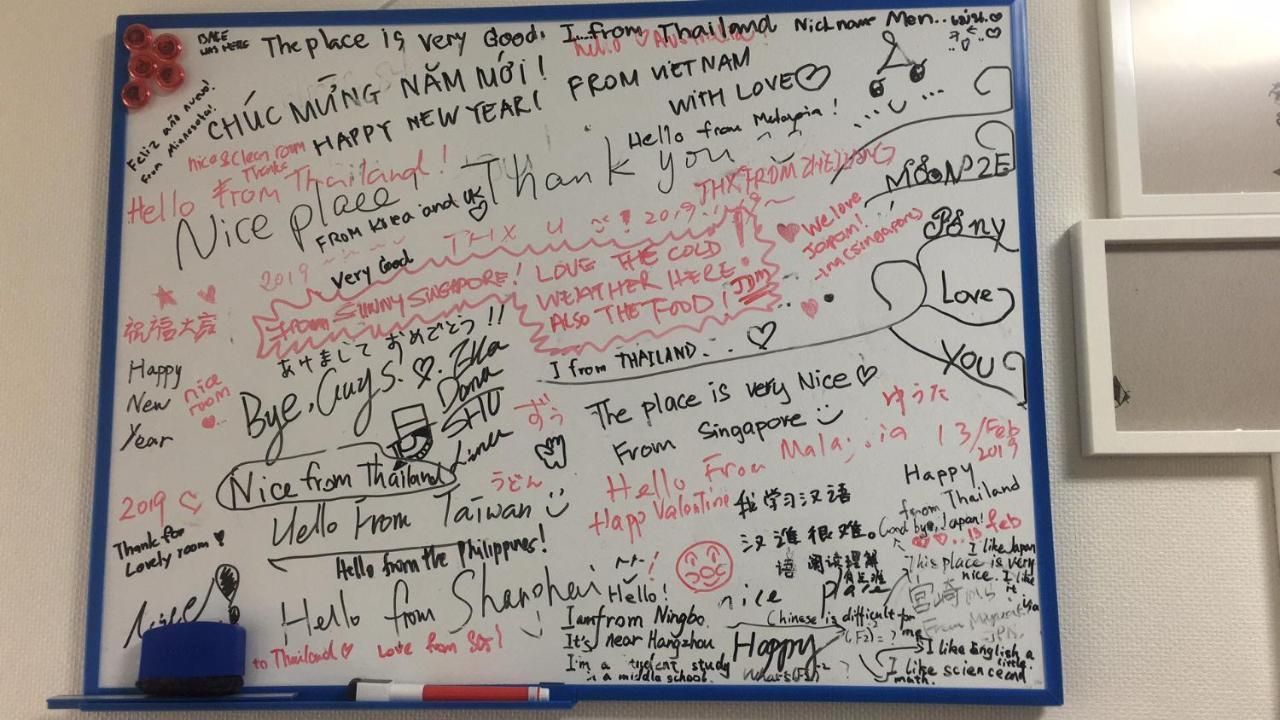 DALE WAS HERE
The place is very Good. I from Thailand Nick name Men..
Feliz año nuevo!
from Minnesota!
CHÚC MỪNG NĂM MỚI!
HAPPY NEW YEAR! FROM VIETNAM
WITH LOVE
Hello from Malaysia!
nice & Clean room
Thanks
Hello From Thailand!
Nice place Thank you
FROM Korea and UK
THX FROM ZHEJIANG
2019
THX U
2019
very Good
We love
Japan!
(singapore)
MOON2E
Pony
Love
YOU
from SUNNY SINGAPORE! LOVE THE COLD
WEATHER HERE!
ALSO THE FOOD! JDM
祝福大家
Happy
New
Year
nice
room
あけましておめでとう!!
Bye, Guys!
Dana
I from THAILAND...
The place is very Nice
From Singapore
ゆうた
13/Feb
2019
Nice from Thailand
うどん
Hello From
Happy Valentine
我学习汉语
汉语很难。
阅读理解
Happy
from Thailand
Good bye, Japan!
13 feb
2019
Hello From Taiwan
Thank for
Lovely room!
Hello from the Philippines!
Hello from Shanghai
Hello!
nice place
I like Japan
This place is very
nice. I like
it
宮崎
Chinese is difficult for
me
Nice!
I am from Ningbo.
It's near Hangzhou
I'm a student, study
in a middle school.
Happy
to Thailand
Love from
I like English a
little.
I like science and
math.